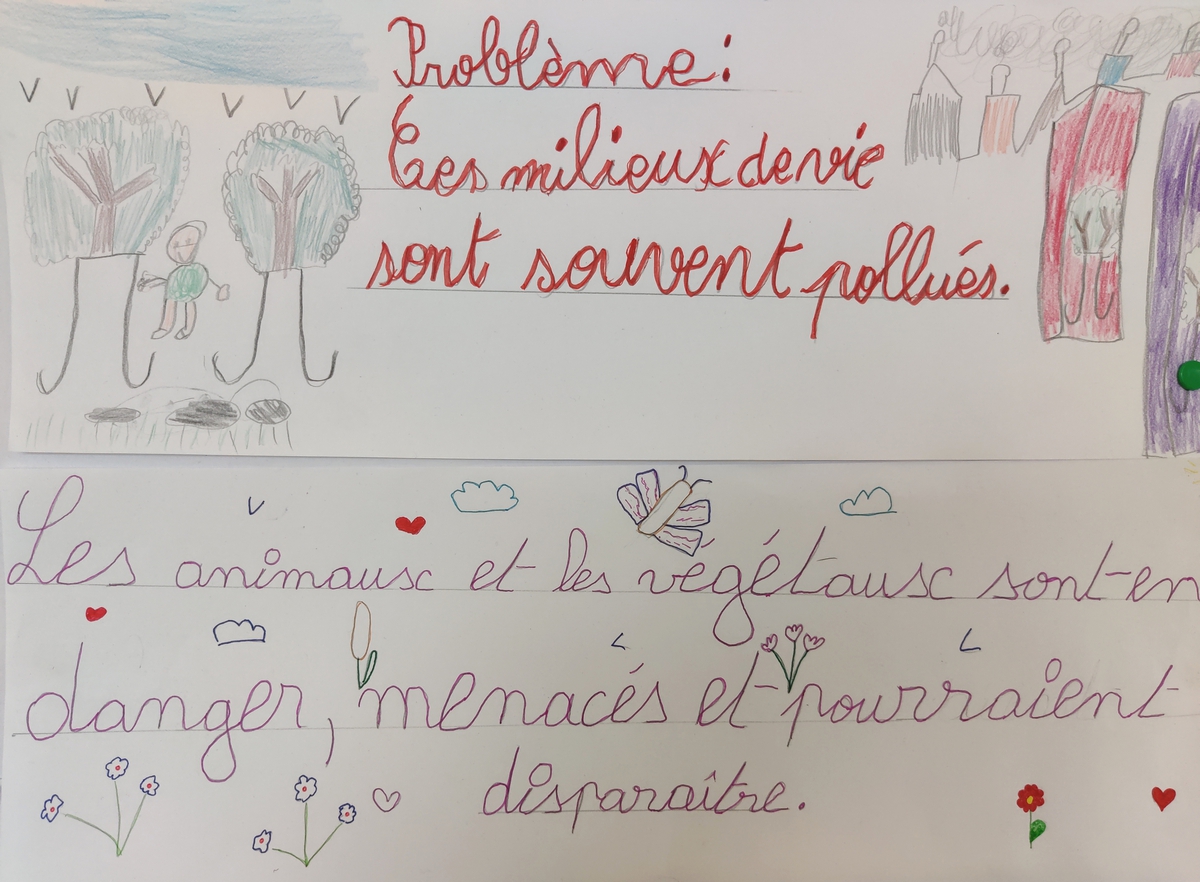 Problème:
Les milieux de vie
sont souvent pollués.
Les animaux et les végétaux sont en
danger, menacés et pourraient
disparaître.